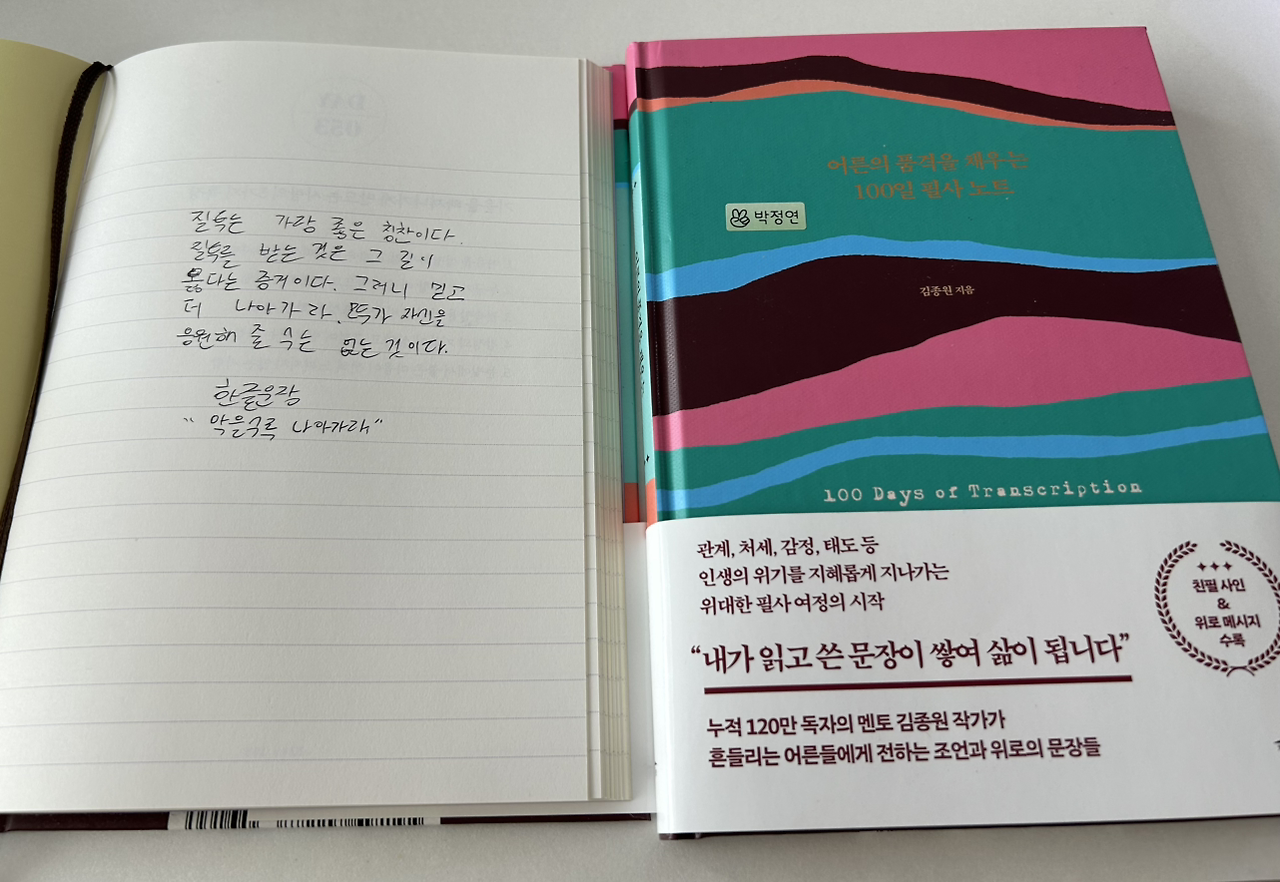 질투는 가장 좋은 칭찬이다.
질투를 받는 것은 그 길이
옳다는 증거이다. 그러니 믿고
더 나아가라. 모두가 자신을
응원해 줄 수는 없는 것이다.
한줄문장
"막을수록 나아가라"
어른의 품격을 채우는
100일 필사 노트
박정연
김종원 지음
100 Days of Transcription
관계, 처세, 감정, 태도 등
인생의 위기를 지혜롭게 지나가는
위대한 필사 여정의 시작
“내가 읽고 쓴 문장이 쌓여 삶이 됩니다”
누적 120만 독자의 멘토 김종원 작가가
흔들리는 어른들에게 전하는 조언과 위로의 문장들
친필 사인
&
위로 메시지
수록